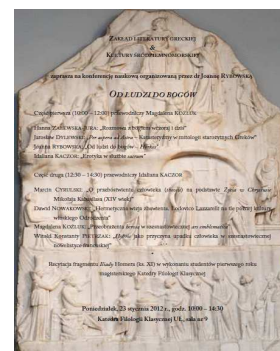 ZAKŁAD LITERATURY GRECKIEJ
&
KULTURY ŚRÓDZIEMNOMORSKIEJ
zaprasza na konferencję naukową organizowaną przez dr Joannę RYBOWSKĄ
OD LUDZI DO BOGÓW
Część pierwsza (10:00 – 12:00) przewodniczy Magdalena KOŹLUK
Hanna ZALEWSKA-JURA: „Rozmowa z bogiem wczoraj i dziś”
Jarosław DYLEWSKI: „Per aspera ad Astra – Katasteryzmy w mitologii starożytnych Greków”
Joanna RYBOWSKA: „Od ludzi do bogów –
Idaliana KACZOR: „Erotyka w służbie sacrum”
Część druga (12:30 – 14:30) przewodniczy Idaliana KACZOR
Marcin CYRULSKI: „O przebóstwieniu człowieka (theosis) na podstawie Życia w Chrystusie
Mikołaja Kabasilasa (XIV wiek)”
Dawid NOWAKOWSKI: „Hermetyczna wizja zbawienia. Lodovico Lazzarelli na tle późnej
włoskiego Odrodzenia”
Magdalena KOŹLUK: „Przeobrażenia heros w szesnastowiecznej ars emblematica”
Witold Konstanty PIETRZAK: „Hybris jako przyczyna upadku człowieka w szesnastowiecznej
nowelistyce francuskiej”
Recytacja fragmentu Iliady Homera (ks. XI) w wykonaniu studentów pierwszego roku
magisterskiego Katedry Filologii Klasycznej
Poniedziałek, 23 stycznia 2012 r., godz. 10:00 – 14:30
Katedra Filologii Klasycznej UŁ, sala nr 9